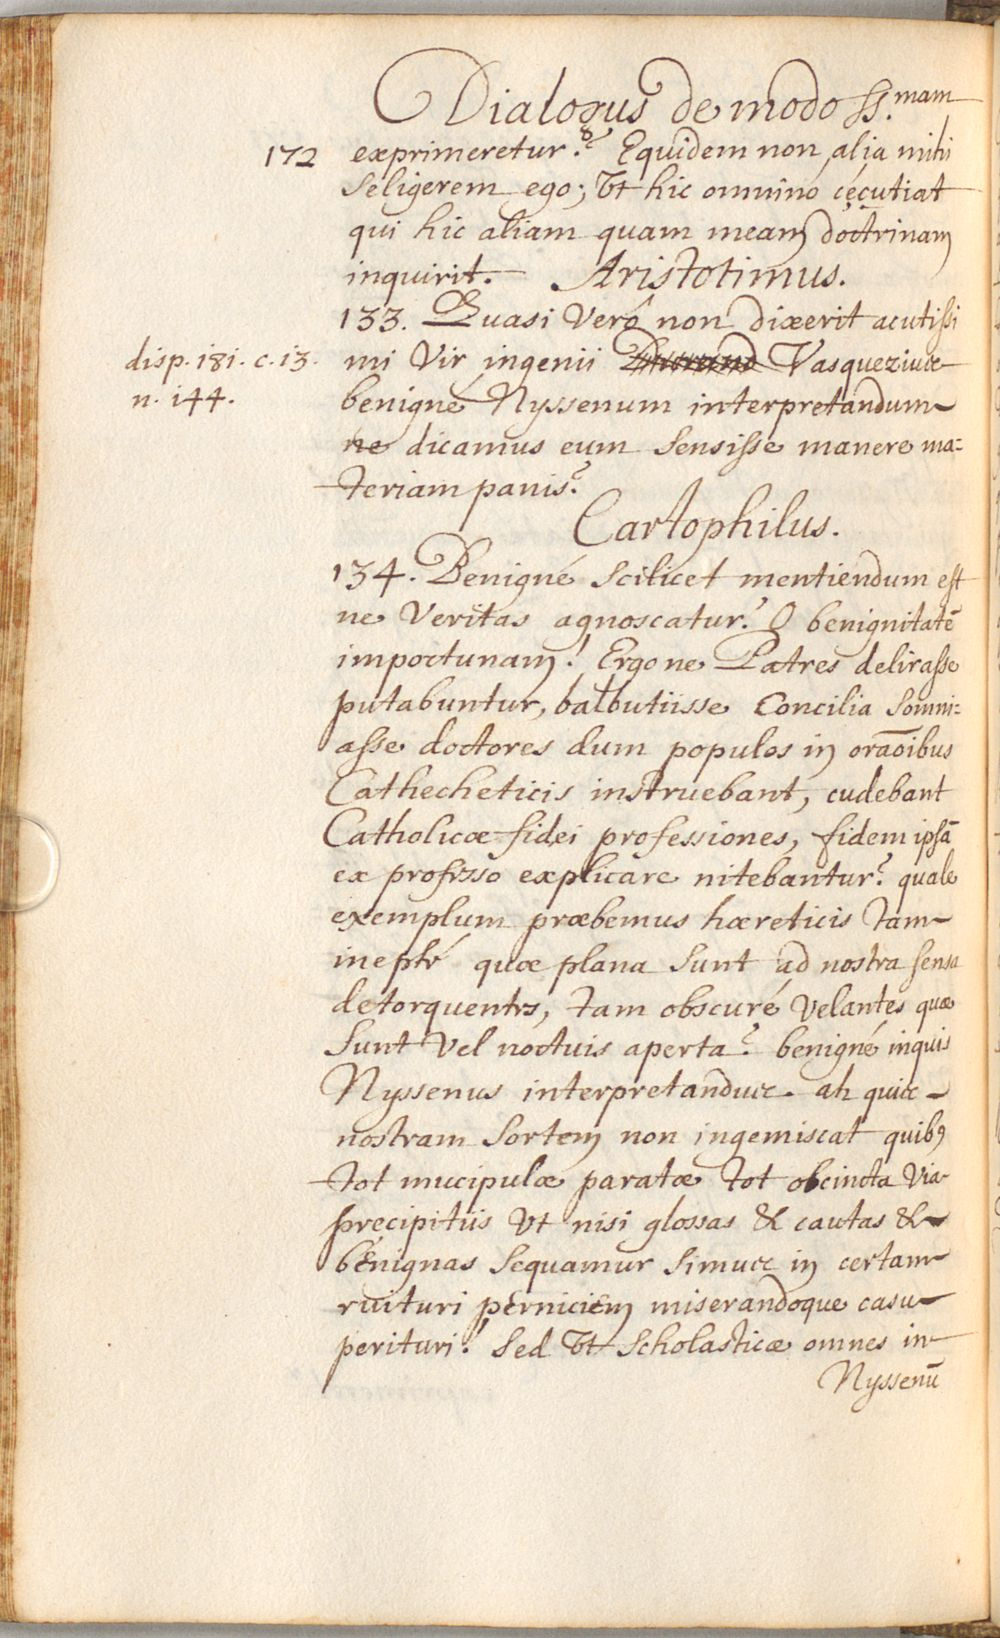 Dialogus de modo ss.mam
172 exprimeretur? Equidem non alia mihi
seligerem ego; Vt hic omnino cęcutiat
qui hic aliam quam meam doctrinam
inquirit. Aristotimus.
133. Quasi Verô non dixerit acutissi
disp. 181. c. 13. mi Vir ingenii Vasquezium
n. 144. benigné Nyssenum interpretandum
ne dicamus eum sensisse manere ma=
teriam panis?
Cartophilus.
134. Benigné scilicet mentiendum est
ne Veritas agnoscatur? O benignitatē
importunam! Ergo ne Patres delirasse
putabuntur, balbutiisse Concilia somni=
asse doctores dum populos in orãoibus
Cathecheticis instruebant, cudebant
Catholicæ fidei professiones, fidem ipsā
ex professo explicare nitebantur? quale
exemplum præbemus hæreticis tam
inepté quæ plana sunt ad nostra sensa
detorquentes, tam obscuré Velantes quæ
sunt Vel noctuis aperta? benigné inquis
Nyssenus interpretandus. ah quis
nostram sortem non ingemiscat quibꝯ
tot muscipulæ paratæ tot obcincta Via
precipitiis Vt nisi glossas & cautas &
benignas sequamur simus in certam
ruituri perniciem miserandoque casu
perituri! Sed Vt Scholasticæ omnes in
Nyssenū